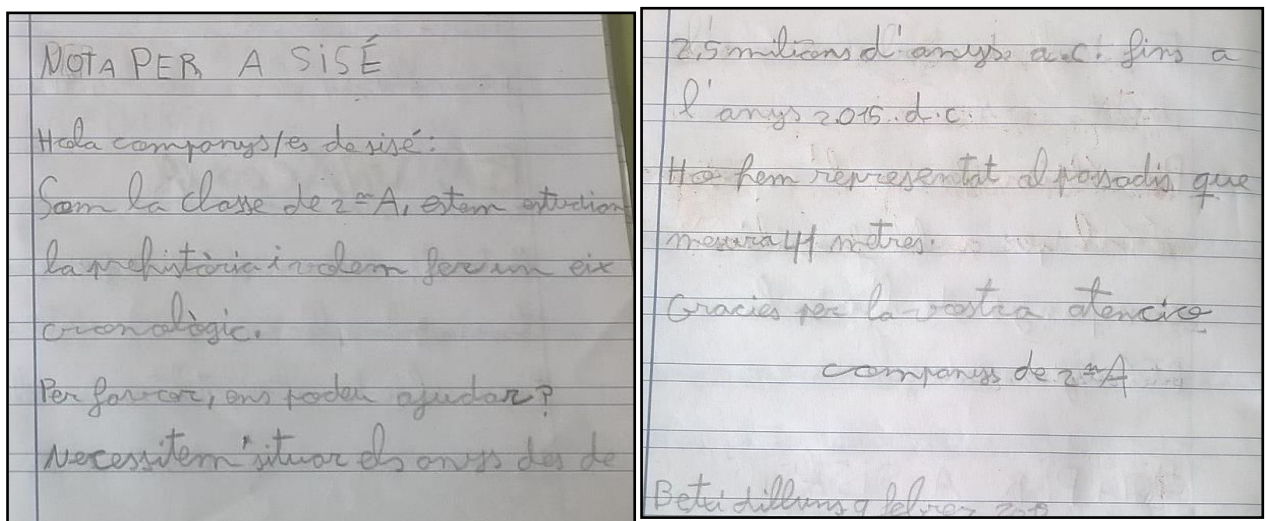 NOTA PER A SISÉ
Hola companys/es de sisé:
Som la classe de 2ⁿA, estem estudian
la prehistòria i volem fer un eix
cronològic.
Per favor, ens podeu ajudar?
Necessitem situar els anys des de
2,5 milions d'anys a.c. fins a
l'anys 2.015.d.c.
Ho hem representat al passadis que
mesura 41 metres.
Gracies per la vostra atencio
companys de 2ⁿA
Beteí dilluns 9 febrer